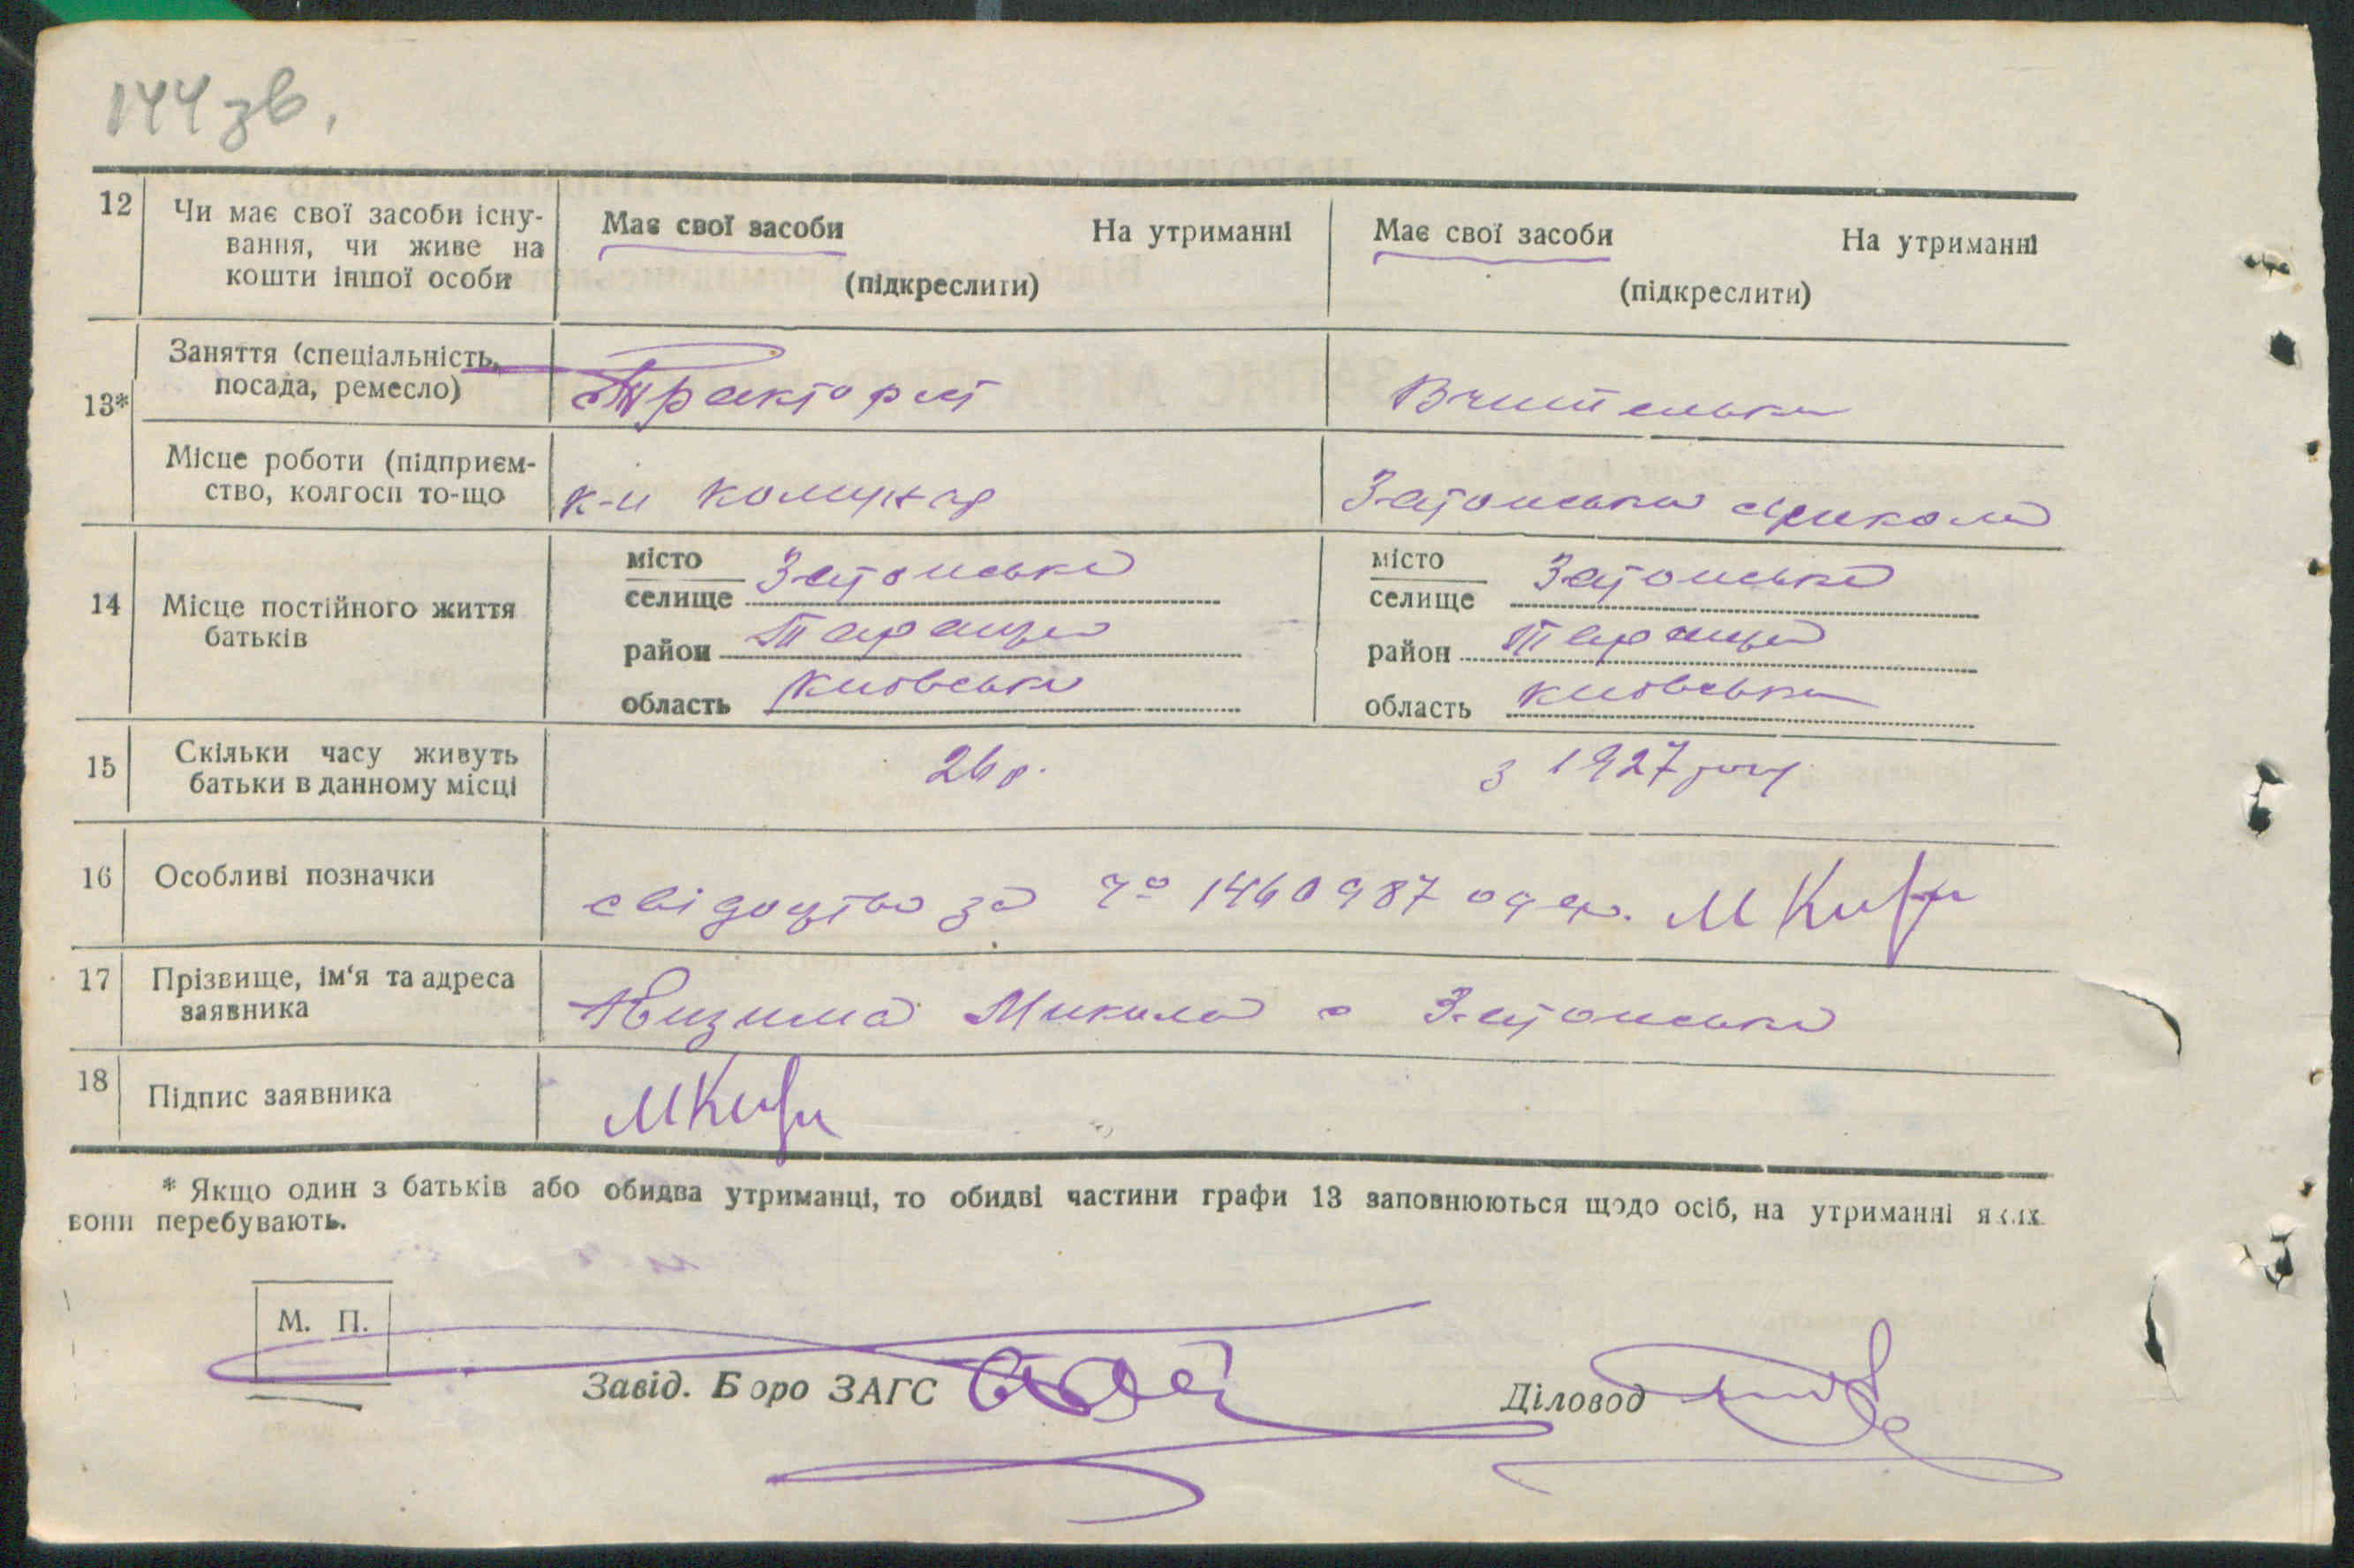 144 зв.
12 Чи має свої засоби існу-
вання, чи живе на
кошти іншої особи
Має свої засоби На утриманні
(підкреслити)
Має свої засоби На утриманні
(підкреслити)
13* Заняття (спеціальність,
посада, ремесло)
Тракторист
Вчителька
Місце роботи (підприєм-
ство, колгосп то-що
к-п комунар
Затонська школа
14 Місце постійного життя
батьків
місто
селище Затонське
район Тараща
область Київська
місто
селище Затонське
район Тараща
область Київська
15 Скільки часу живуть
батьки в данному місці
26 р.
з 1927 року
16 Особливі позначки
свідоцтво за № 1460987 одер.
17 Прізвище, ім‘я та адреса
заявника
Микола с Затонське
18 Підпис заявника
* Якщо один з батьків або обидва утриманці, то обидві частини графи 13 заповнюються щодо осіб, на утриманні яких
вони перебувають.
М. П.
Завід. Бюро ЗАГС
Діловод